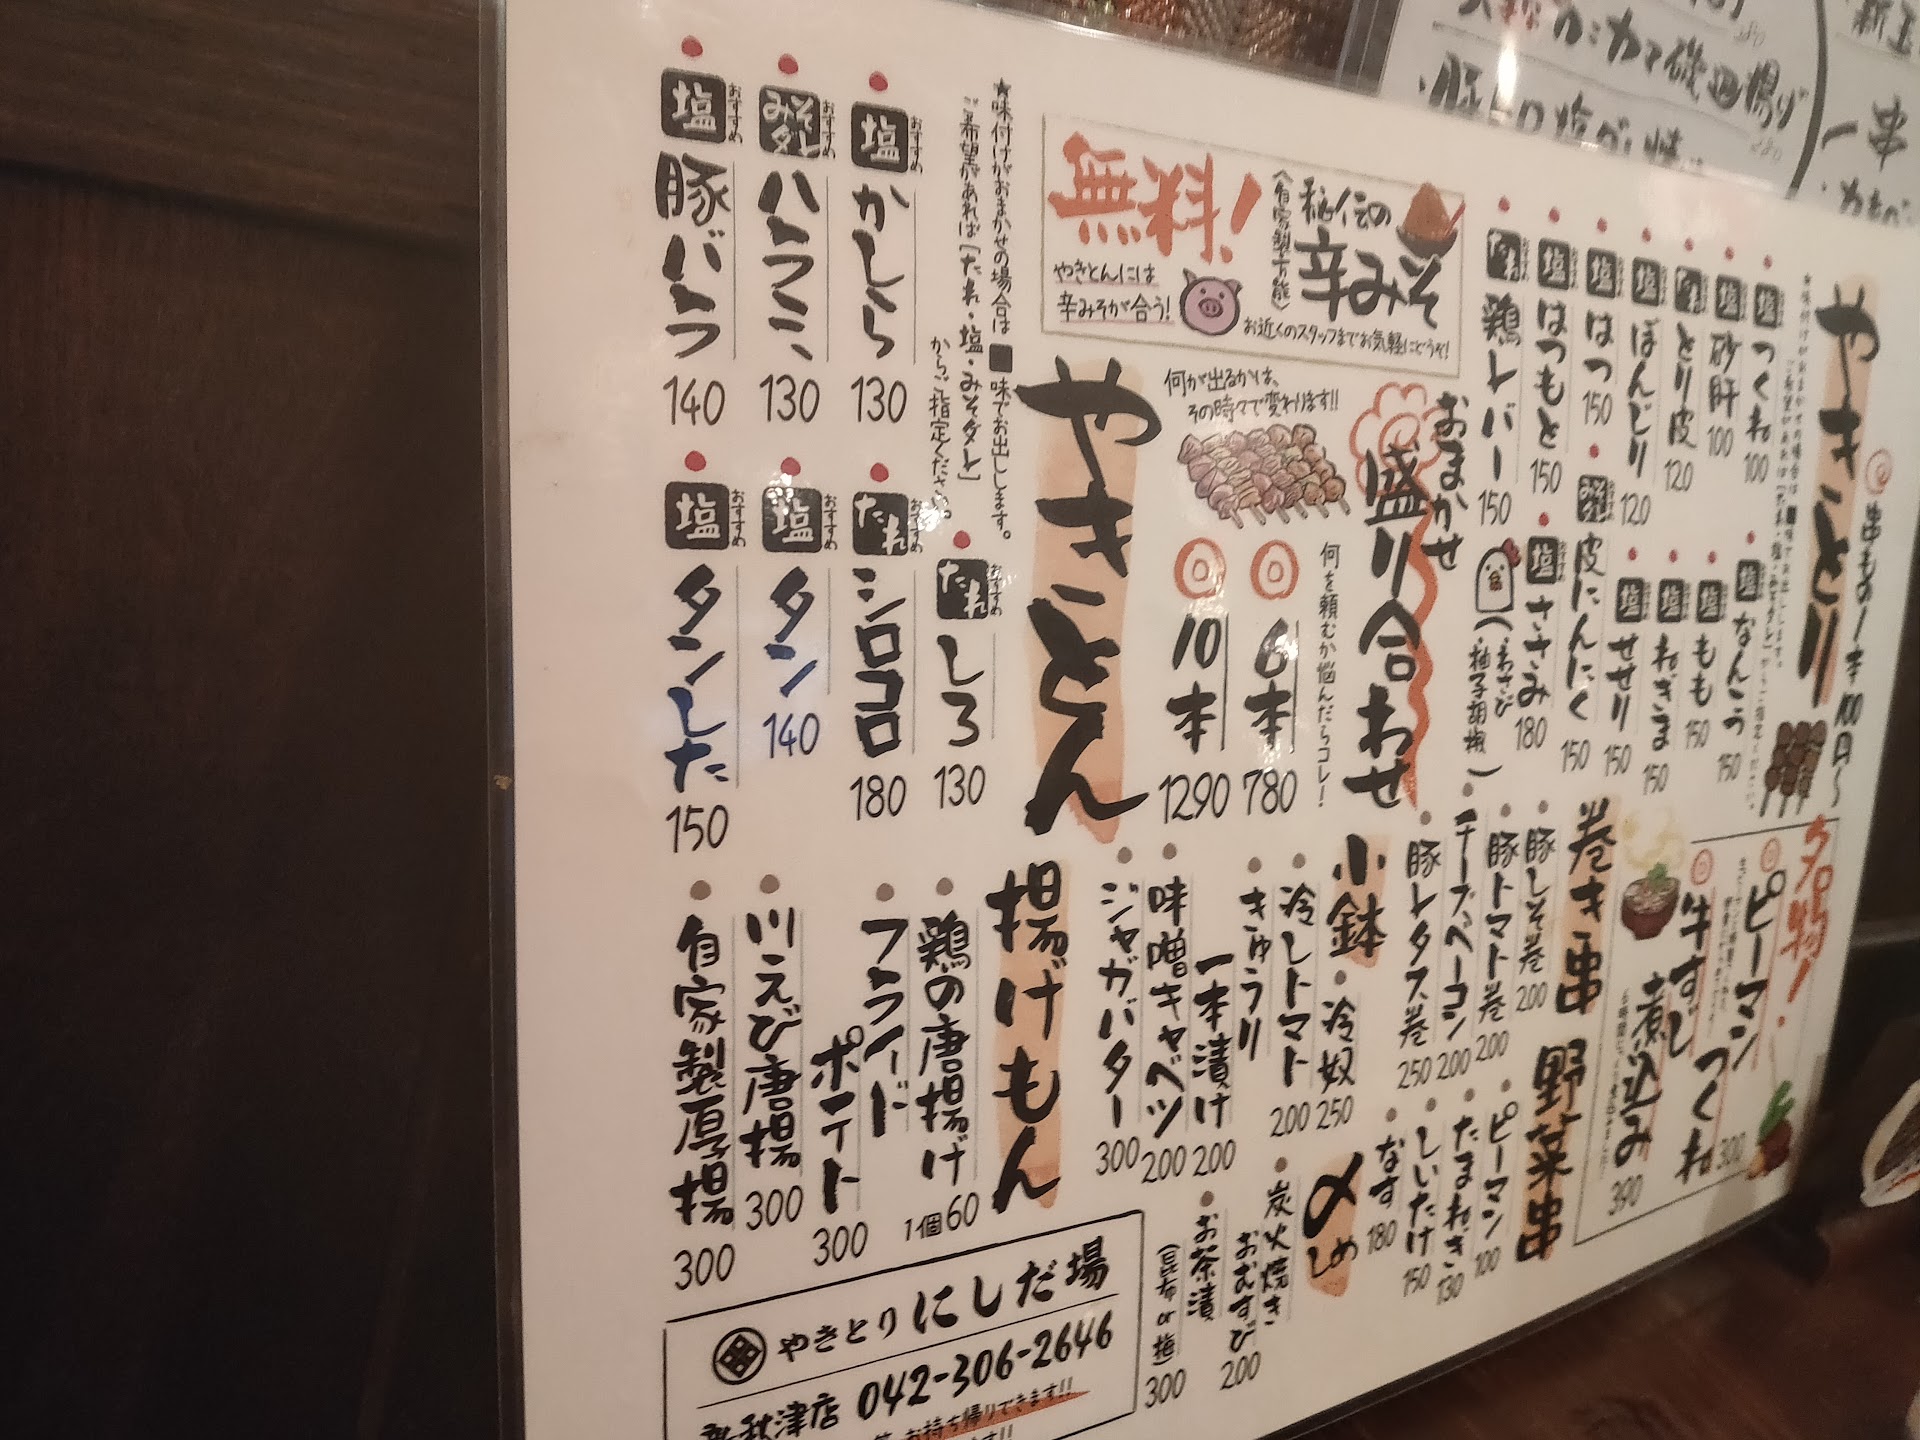 やきとり
串もの一本100円〜
塩 つくね 100
塩 砂肝 100
たれ とり皮 120
塩 ぼんじり 120
塩 はつ 150
塩 はつもと 150
たれ 鶏レバー 150
塩 なんこつ 150
塩 もも 150
塩 ねぎま 150
塩 せせり 150
皮にんにく 150
塩 ささみ 180
(・わさび
・柚子胡椒)
名物!
ピーマンつくね 300
牛すじ煮込み 390
巻き串
豚しそ巻 200
豚トマト巻 200
チーズベーコン 200
豚レタス巻 250
野菜串
ピーマン 100
たまねぎ 130
しいたけ 150
なす 180
秘伝の
辛みそ
(自家製万能)
無料
やきとんには
辛みそが合う!
お近くのスタッフまでお気軽にどうぞ!
おまかせ
盛り合わせ
何が出るかは、
その時々で変わります!!
何を頼むか悩んだらコレ!
6本 780
10本 1290
小鉢
冷奴 250
冷しトマト 200
きゅうり
一本漬け 200
味噌キャベツ 200
ジャガバター 300
〆しめ
炭火焼き
おむすび 200
お茶漬
(昆布or梅) 300
やきとん
★味付けがおまかせの場合は■味でお出しします。
ご希望があれば「たれ・塩・みそダレ」
からご指定ください。
たれ おすすめ しろ 130
塩 おすすめ かしら 130
たれ おすすめ シロコロ 180
みそダレ おすすめ ハラミ 130
塩 おすすめ タン 140
塩 おすすめ 豚バラ 140
塩 おすすめ タンした 150
揚げもん
鶏の唐揚げ 1個60
フライド
ポテト 300
川えび唐揚 300
自家製厚揚 300
やきとり にしだ場
新秋津店 042-306-2646
お持ち帰りできます!!